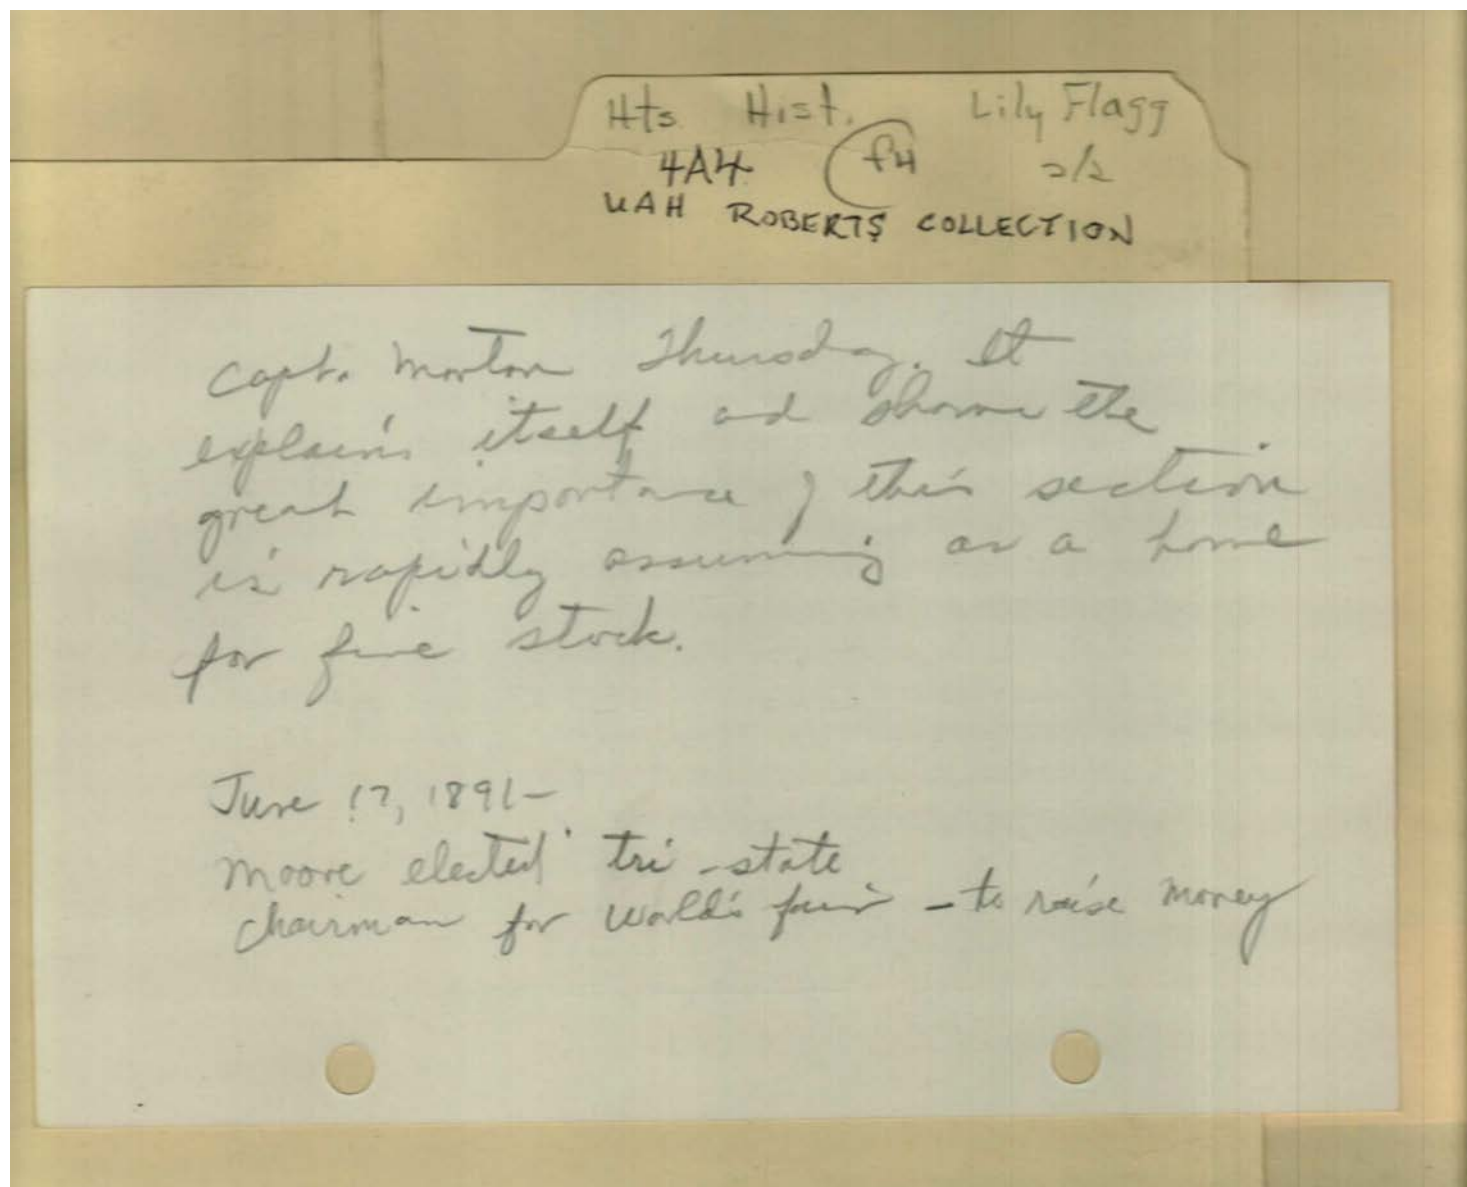 Hts Hist. Lily Flagg
4A4 f4 2/2
UAH ROBERTS COLLECTION
Capt. Morton Thursday. It
explains itself and shows the
great importance of this section
is rapidly assuming as a home
for fine stock.
June 17, 1891-
Moore elected tri-state
chairman for World's fair - to raise money